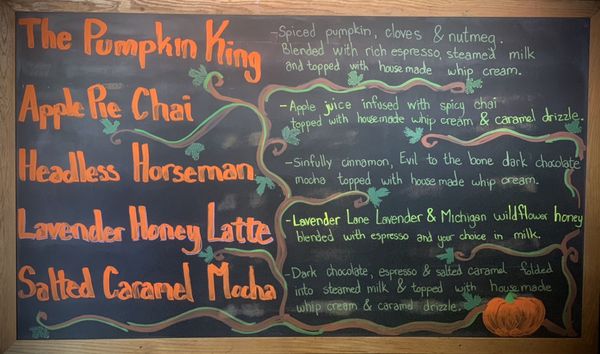 The Pumpkin King
-Spiced pumpkin, cloves & nutmeg.
Blended with rich espresso, steamed milk
and topped with house made whip cream.
Apple Pie Chai
-Apple juice infused with spicy chai
topped with housemade whip cream & caramel drizzle.
Headless Horseman
-Sinfully cinnamon, Evil to the bone dark chocolate
mocha topped with house made whip cream.
Lavender Honey Latte
-Lavender Lane Lavender & Michigan wildflower honey
blended with espresso and your choice in milk.
Salted Caramel Mocha
-Dark chocolate, espresso & salted caramel folded
into steamed milk & topped with housemade
whip cream & caramel drizzle.